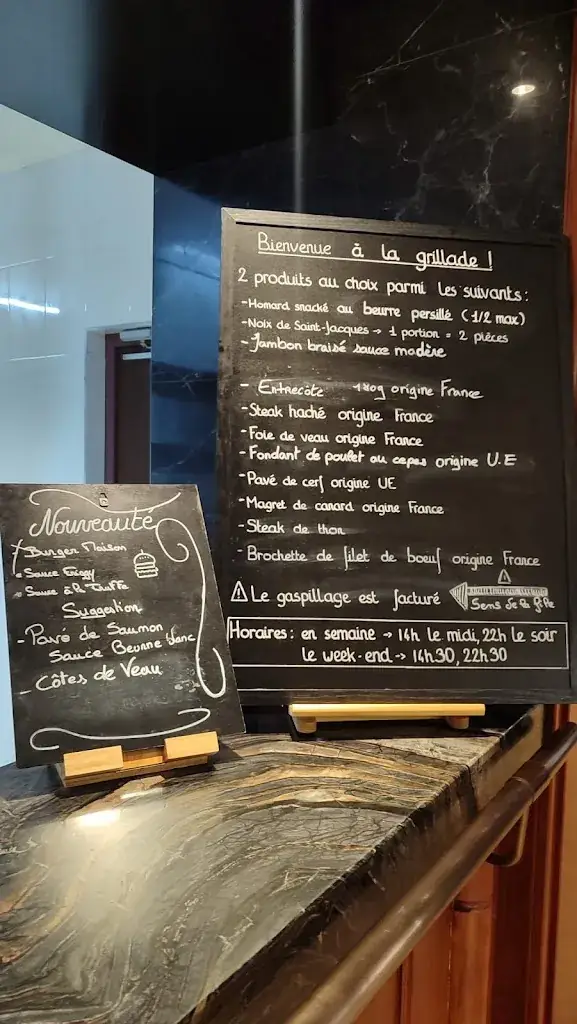 Bienvenue à la grillade !
2 produits au choix parmi les suivants :
- Homard snacké au beurre persillé (1/2 max)
- Noix de Saint-Jacques → 1 portion = 2 pièces
- Jambon braisé sauce madère
- Entrecôte 180g origine France
- Steak haché origine France
- Foie de veau origine France
- Fondant de poulet au cepes origine U.E
- Pavé de cerf origine UE
- Magret de canard origine France
- Steak de thon
- Brochette de filet de boeuf origine France
⚠ Le gaspillage est facturé
Sens de la file
Horaires : en semaine → 14h le midi, 22h le soir
le week-end → 14h30, 22h30
Nouveauté
Burger Maison
Sauce
Sauce à la Truffe
Suggestion
- Pavé de Saumon
Sauce Beurre blanc
- Côtes de Veau